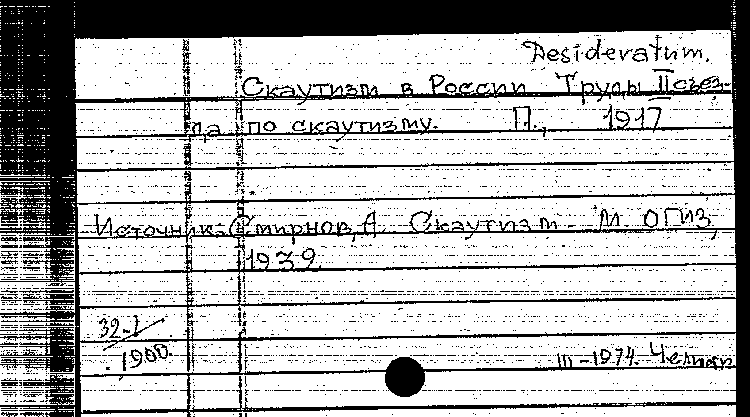 Desideratum.
Скаутизм в России Труды II съез-
да по скаутизму. П., 1917
Источник: Смирнов, А. Скаутизм - М. ОГИЗ,
1939
39-1
1900.
III - 1974.